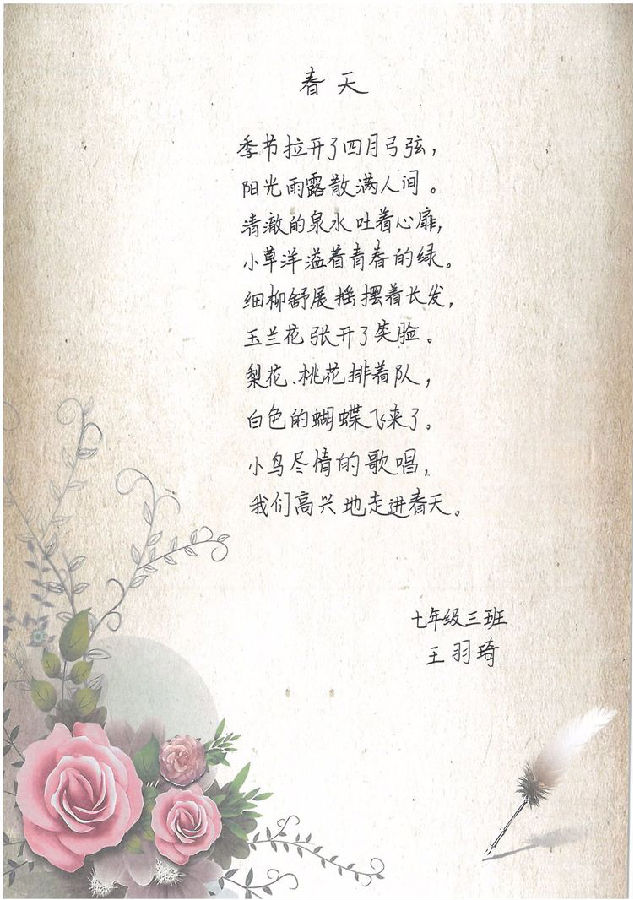 春天
季节拉开了四月弓弦，
阳光雨露散满人间。
清澈的泉水吐着心扉，
小草洋溢着青春的绿。
细柳舒展摇摆着长发，
玉兰花张开了笑脸。
梨花、桃花排着队，
白色的蝴蝶飞来了。
小鸟尽情的歌唱，
我们高兴地走进春天。
七年级三班
王羽琦